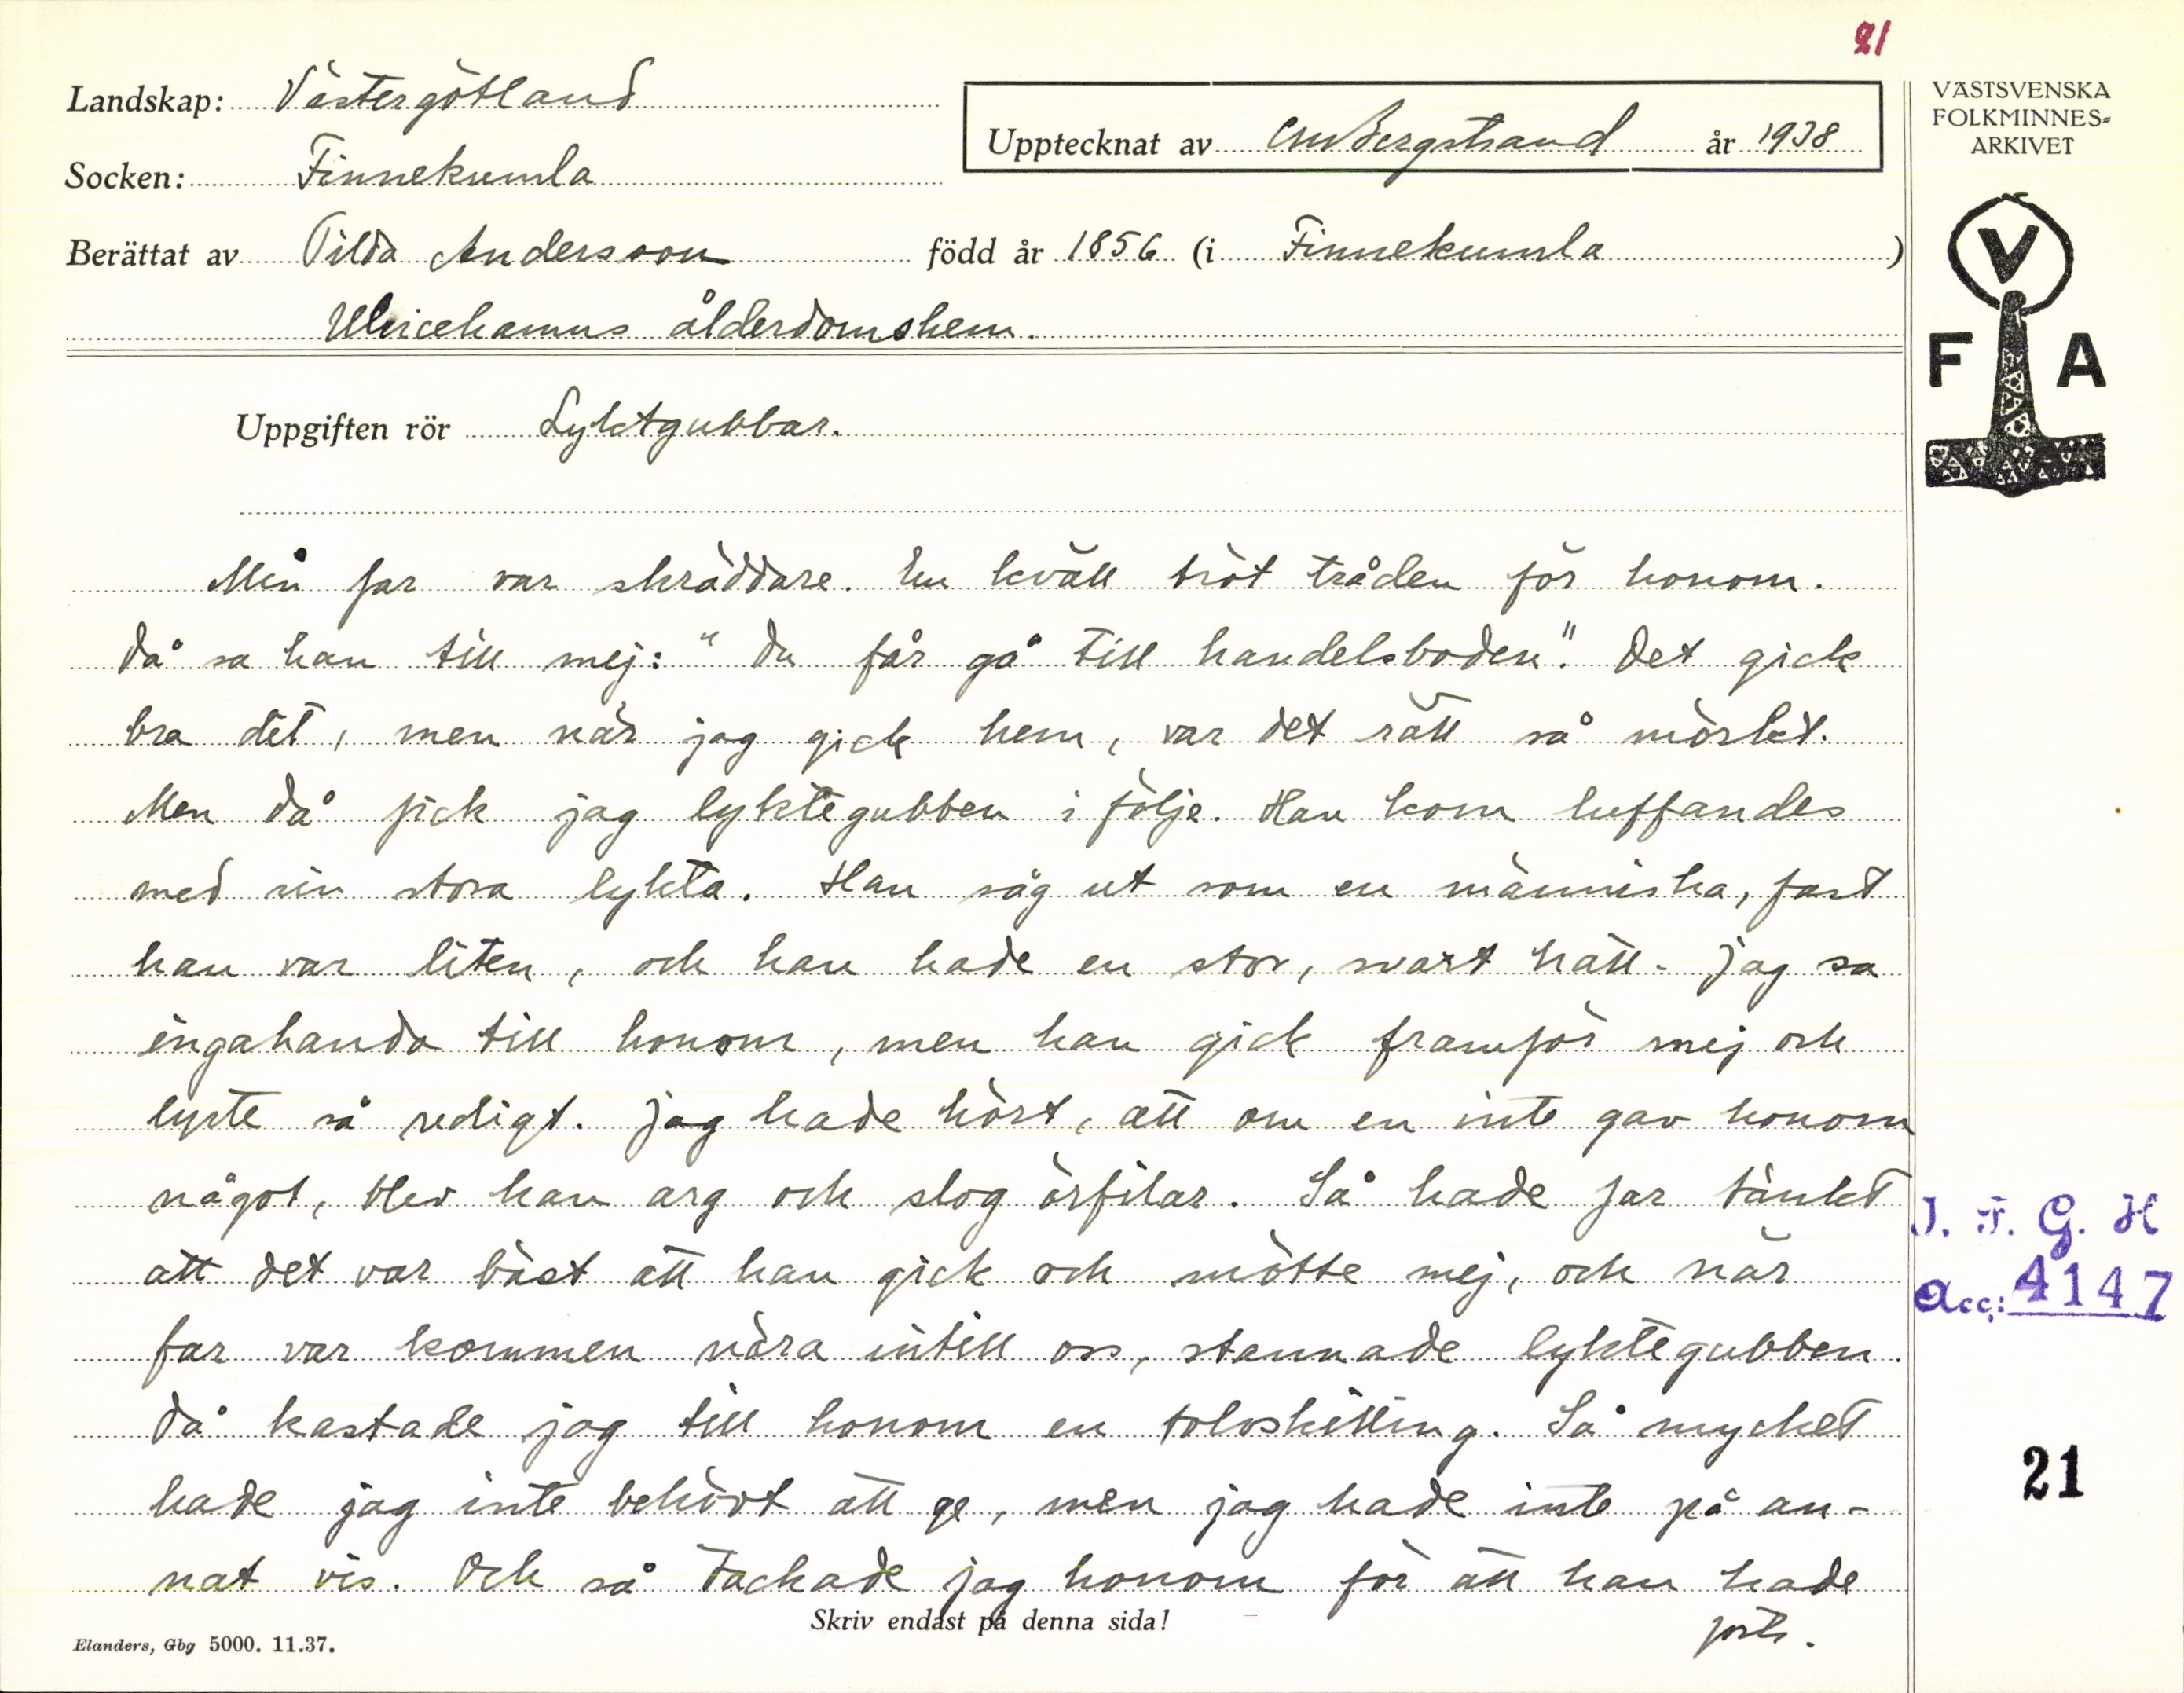 21
Landskap: Västergötland
Upptecknat av C.M. Bergstrand år 1938
VÄSTSVENSKA
FOLKMINNES-
ARKIVET
Socken: Finnekumla
Berättat av Tilda Andersson född år 1856 (i Finnekumla)
Ulricehamns ålderdomshem.
V
F A
Uppgiften rör Lyktgubbar.
Min far var skräddare. En kväll tröt tråden för honom.
Då sa han till mej: "Du får gå till handelsboden". Det gick
bra det, men när jag gick hem, var det rätt så mörkt.
Men då fick jag lyktegubben i följe. Han kom luffandes
med sin stora lykta. Han såg ut som en människa, fast
han var liten, och han hade en stor, svart hatt. Jag sa
ingahanda till honom, men han gick framför mej och
lyste så redigt. Jag hade hört, att om en inte gav honom
något, blev han arg och slog örfilar. Så hade far tänkt
att det var bäst att han gick och mötte mej, och när
far var kommen nära intill oss, stannade lyktegubben.
Då kastade jag till honom en tolvskilling. Så mycket
hade jag inte behövt att ge, men jag hade inte på an-
nat vis. Och så tackade jag honom för att han hade
forts.
Skriv endast på denna sida!
Elanders, Gbg 5000. 11.37.
I. F. G. H
Acc: 4147
21